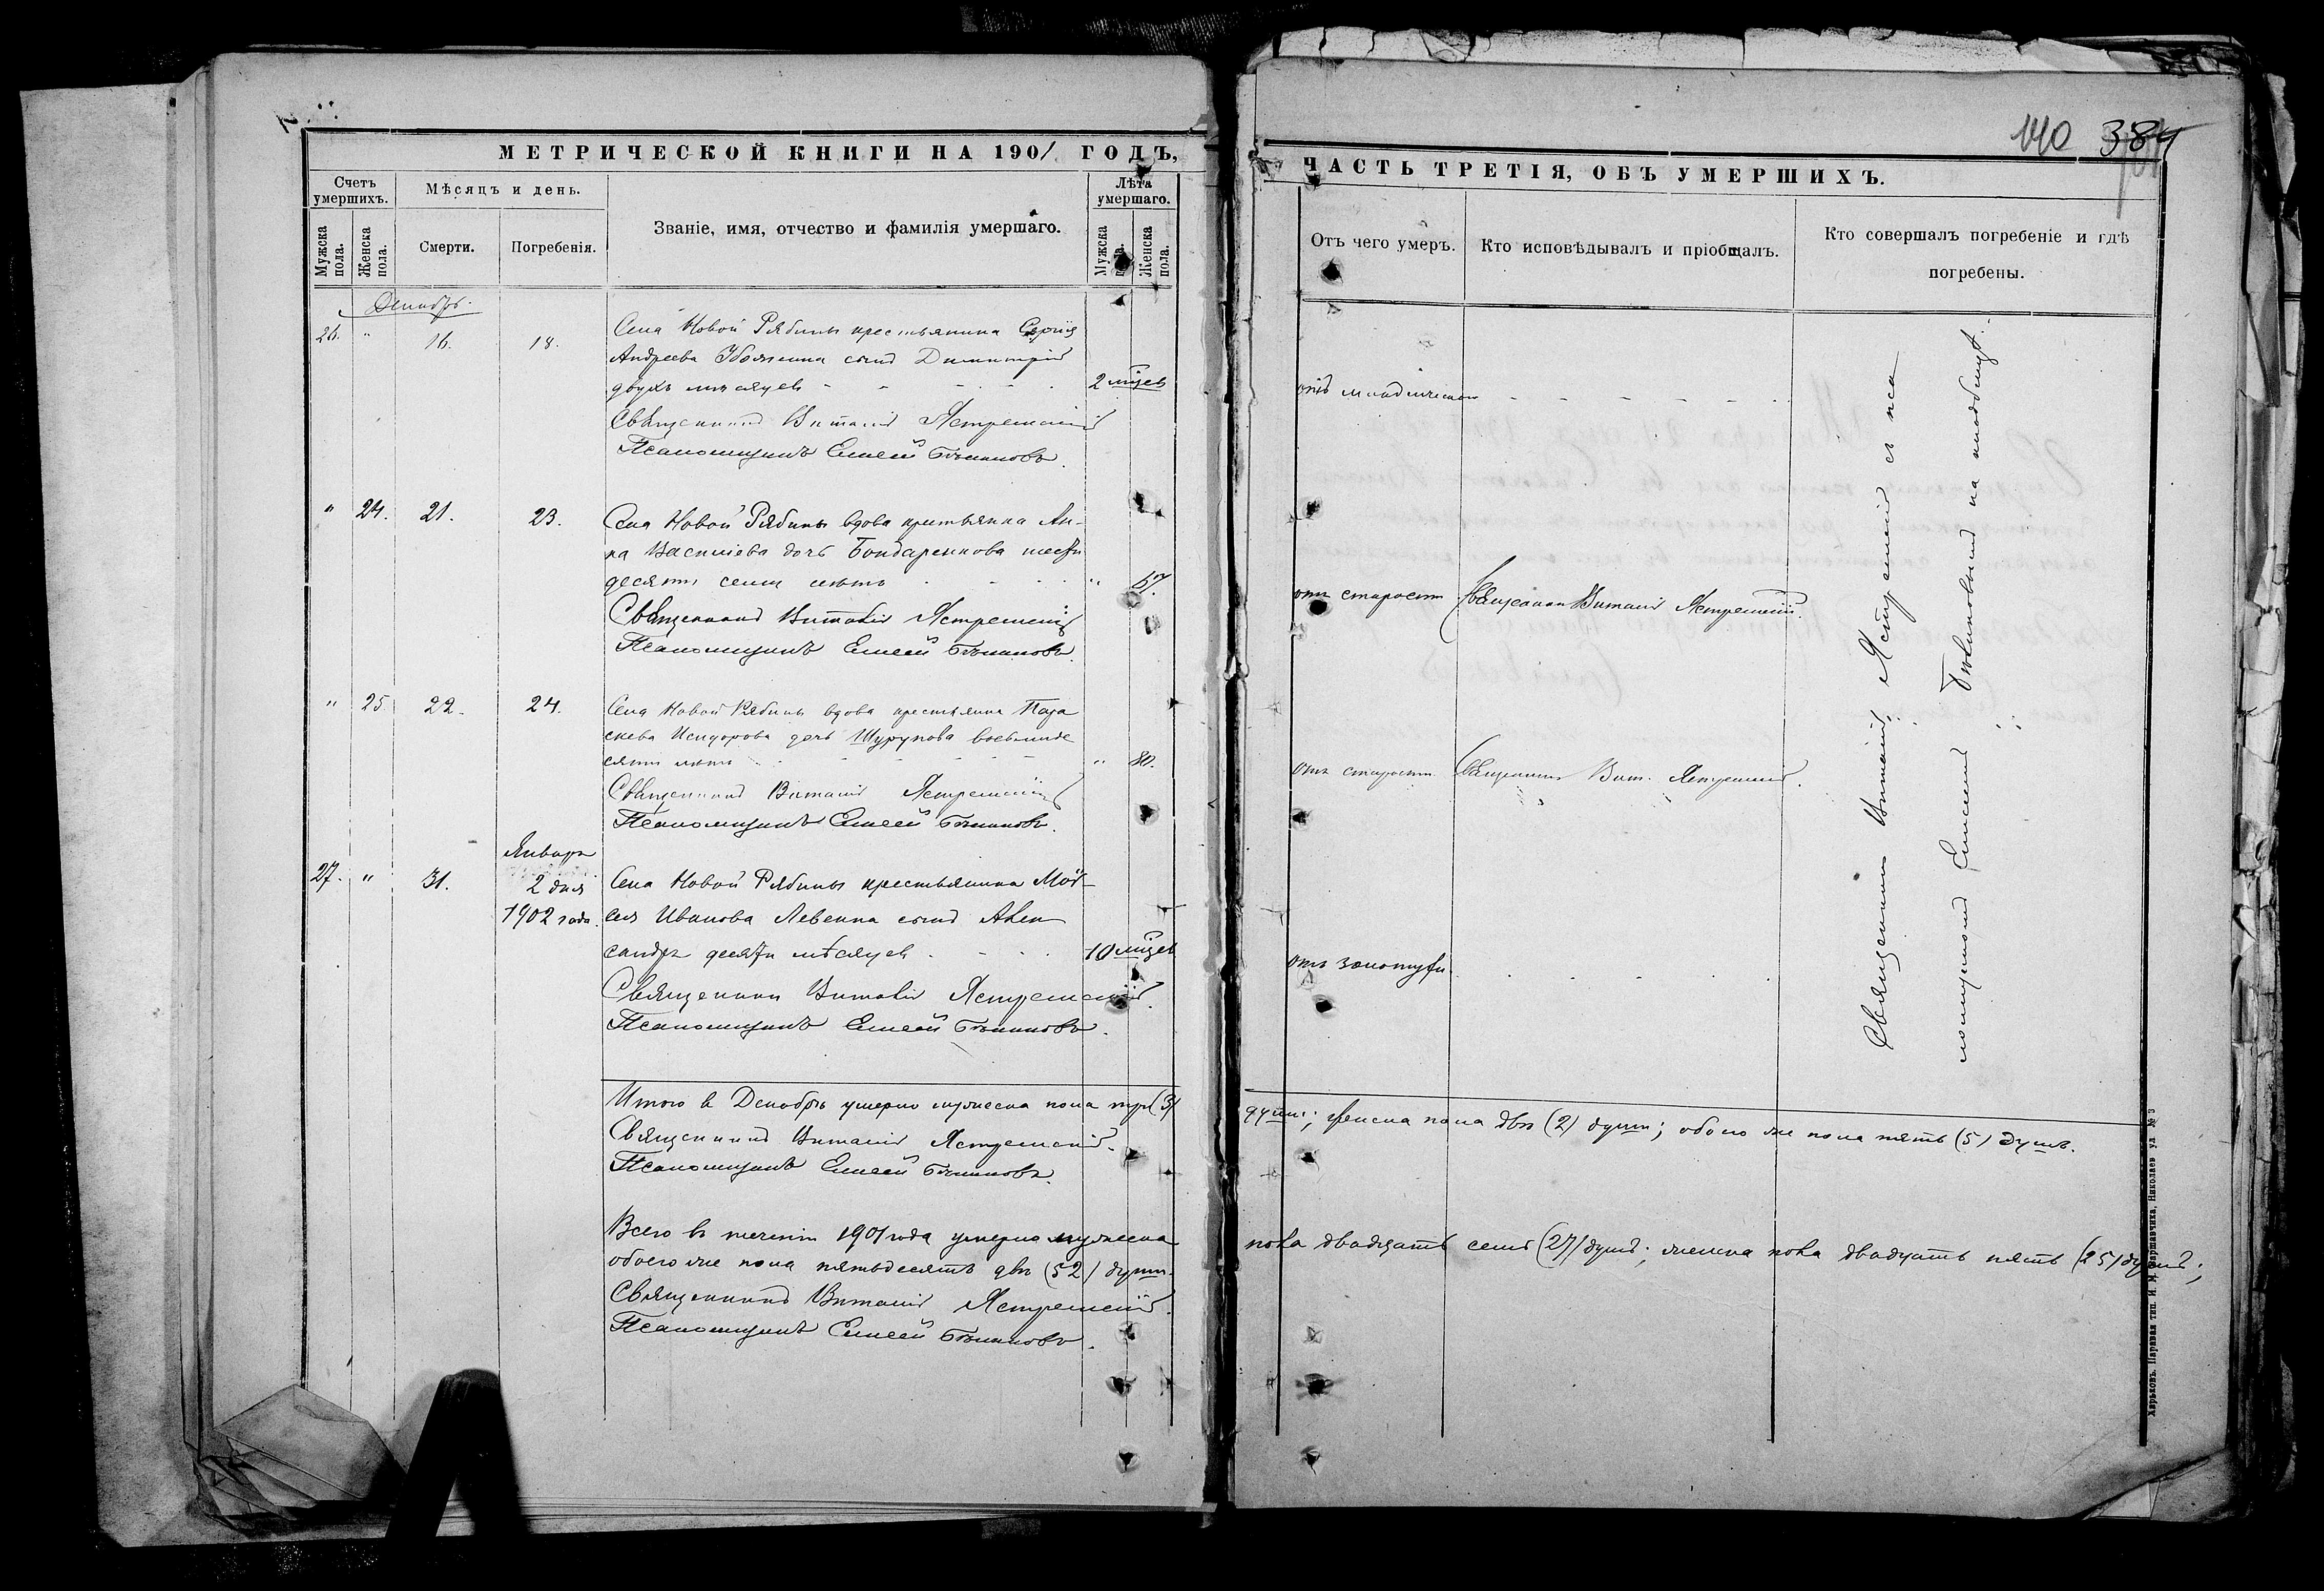 МЕТРИЧЕСКОЙ КНИГИ НА 1901 ГОДЪ,
Счетъ умершихъ.
Мужска пола.
Женска пола.
Мѣсяцъ и день.
Смерти.
Погребенія.
Званіе, имя, отчество и фамилія умершаго.
Лѣта умершаго.
Мужска пола.
Женска пола.
Декабрь.
26. " 16. 18. Села Новой Рябины крестьянина Сергія
Андреева сынъ Димитрій
двухъ мѣсяцевъ - - - - 2 мѣцев
Священникъ Виталій Ястремскій
Псаломщикъ Елисей
" 24. 21. 23. Села Новой Рябины вдова крестьянка Ан-
на Васильева дочь Бондаренкова шесть
десятъ семи лѣтъ " 67.
Священникъ Виталій Ястремскій
Псаломщикъ Елисей
" 25. 22. 24. Села Новой Рябины вдова крестьянка Пара
скева Исидорова дочь Шурупова восьмиде
сяти лѣтъ " 80.
Священникъ Виталій Ястремскій
Псаломщикъ Елисей
Январь
27. " 31. 2 дня Села Новой Рябины крестьянина Мои-
1902 года. сея Иванова Левенка сынъ Алек
сандръ десяти мѣсяцевъ 10 мѣцев
Священникъ Виталій Ястремскій.
Псаломщикъ Елисей
Итого въ Декабрѣ умерло мужеска пола три (3)
Священникъ Виталій Ястремскій.
Псаломщикъ Елисей
Всего въ теченіи 1901 года умерло мужеска
обоего же пола пятьдесятъ двѣ (52) души.
Священникъ Виталій Ястремскій.
Псаломщикъ Елисей
140 384
ЧАСТЬ ТРЕТІЯ, ОБЪ УМЕРШИХЪ.
Отъ чего умеръ.
Кто исповѣдывалъ и пріобщалъ.
Кто совершалъ погребеніе и гдѣ погребены.
отъ младенческой
отъ старости Священникъ Виталій Ястремскій.
отъ старости Священникъ Вит. Ястремскій.
отъ золотухи
Священникъ Виталій Ястремскій съ пса
ломщикомъ Елисеемъ на кладбищѣ.
души; женска пола двѣ (2) души; обоего же пола пять (5) душъ.
пола двадцать семь (27) душъ; женска пола двадцать пять (25) душъ;
Харьковъ. Паровая тип. И. М. Варшавчика, Николаев. ул. № 3